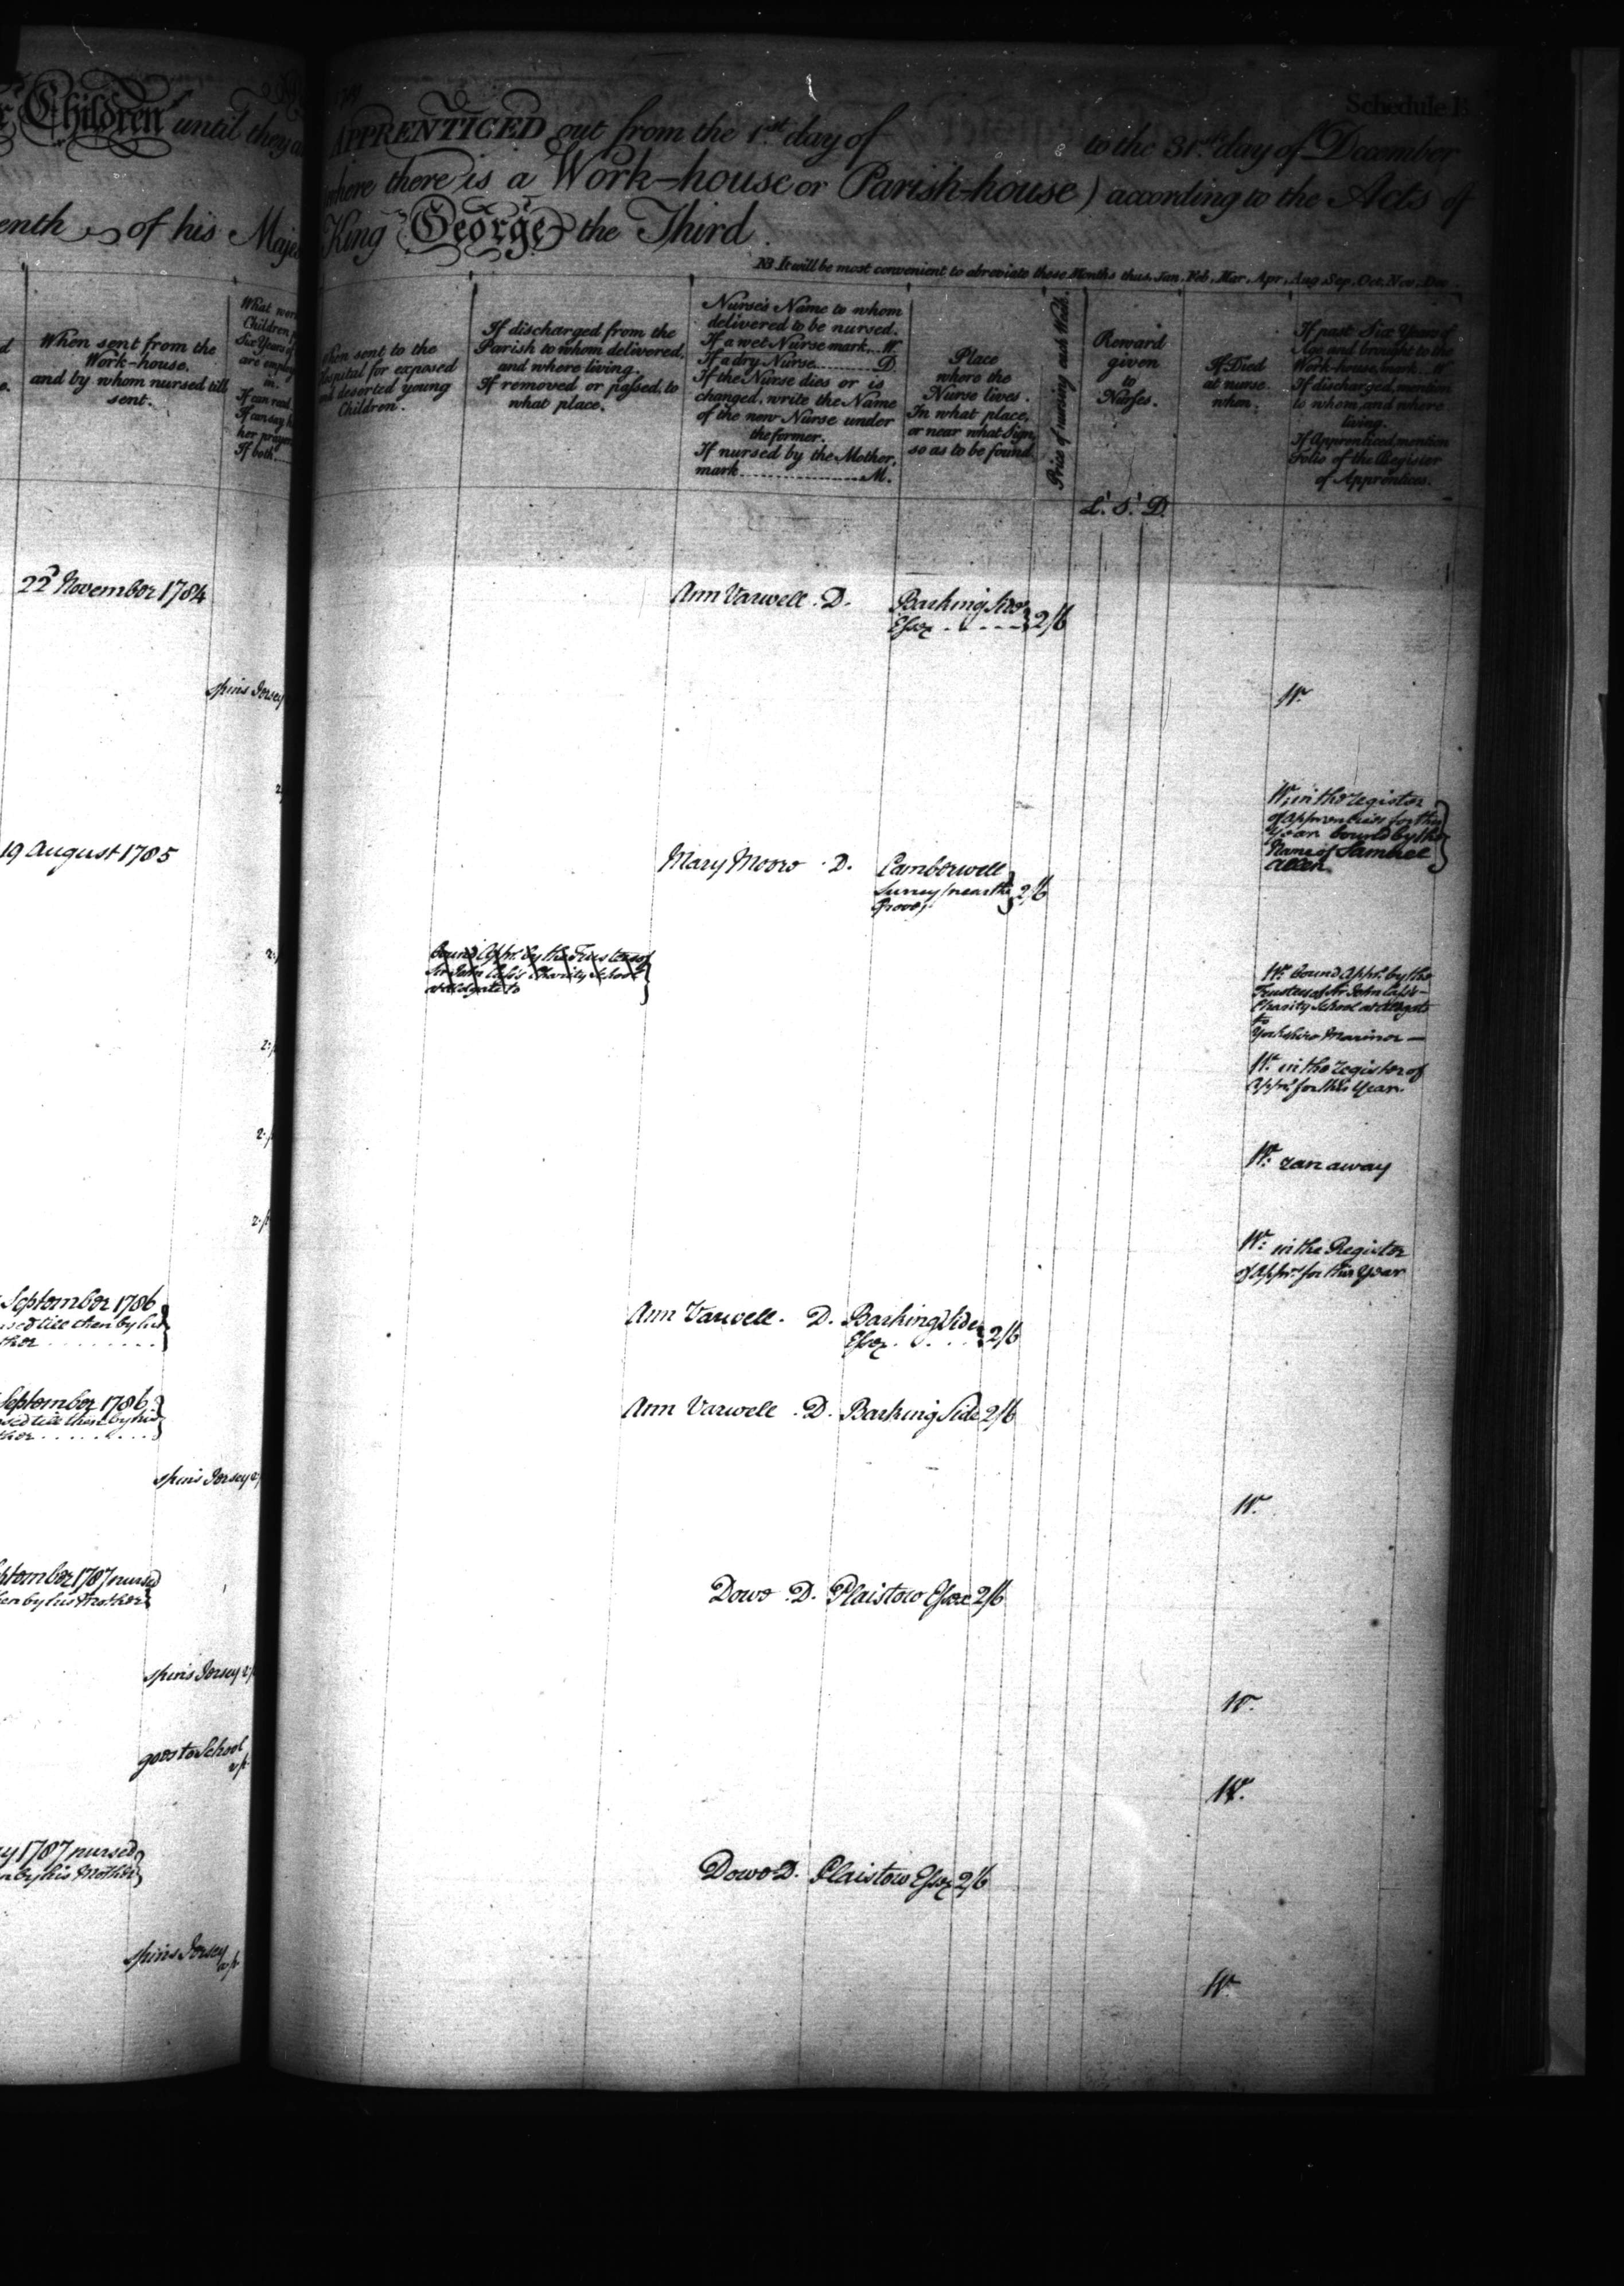 Children until they a
enth of his Maje
When sent from the
Work-house.
and by whom nursed till
sent.
What wor
Children
Six Years of
are employ
in.
If can read
If can say h
her prayer
If both
22d November 1784
spins Jersey
19 August 1785
September 1786
till then by his
ther
September 1786
till then by his
ther
spins Jersey
ptember 1787 nursed
en by his Mother
spins Jersey
goes to School
y 1787 nursed
n by his Mother
spins Jersey
Schedule
APPRENTICED out from the 1st. day of to the 31st. day of December
where there is a Work-house or Parish-house) according to the Acts of
King George the Third.
NB. It will be most convenient to abreviate these Months thus, Jan, Feb, Mar, Apr, Aug, Sep, Oct, Nov, Dec.
When sent to the
Hospital for exposed
and deserted young
Children.
If discharged from the
Parish to whom delivered,
and where living.
If removed or passed, to
what place.
Nurse's Name to whom
delivered to be nursed.
If a wet Nurse mark...W.
If a dry Nurse.......D.
If the Nurse dies or is
changed, write the Name
of the new Nurse under
the former.
If nursed by the Mother,
mark................M.
Place
where the
Nurse lives.
In what place,
or near what Sign,
so as to be found.
Price of nursing each Week.
Reward
given
to
Nurses.
If Died
at nurse
when.
If past Six Years of
Age and brought to the
Work-house, mark...W
If discharged, mention
to whom, and where
living.
If Apprenticed, mention
Folio of the Register
of Apprentices.
L. S. D.
Ann Varwell . D. Barking Side
Essex 2/6
W.
W. in the register
of apprentices for this
Year bound by the
Name of Samuel
Allen
Mary Moore . D. Camberwell
Surry (near the 2/6
Grove)
bound Appr. by the Trustees of
Sir John Cass's Charity School
Aldgate to
W. bound Appr. by the
Trustees of Sir John Cass's
Charity School at Aldgate
to
Yorkshire Mariner —
W. in the register of
Appr. for this Year.
W. ran away
W. in the Register
of Appr. for this Year
Ann Varwell . D. Barking Side
Essex 2/6
Ann Varwell . D. Barking Side 2/6
W.
Dowe . D. Plaistow Essex 2/6
W.
W.
Dowe D. Plaistow Essex 2/6
W.